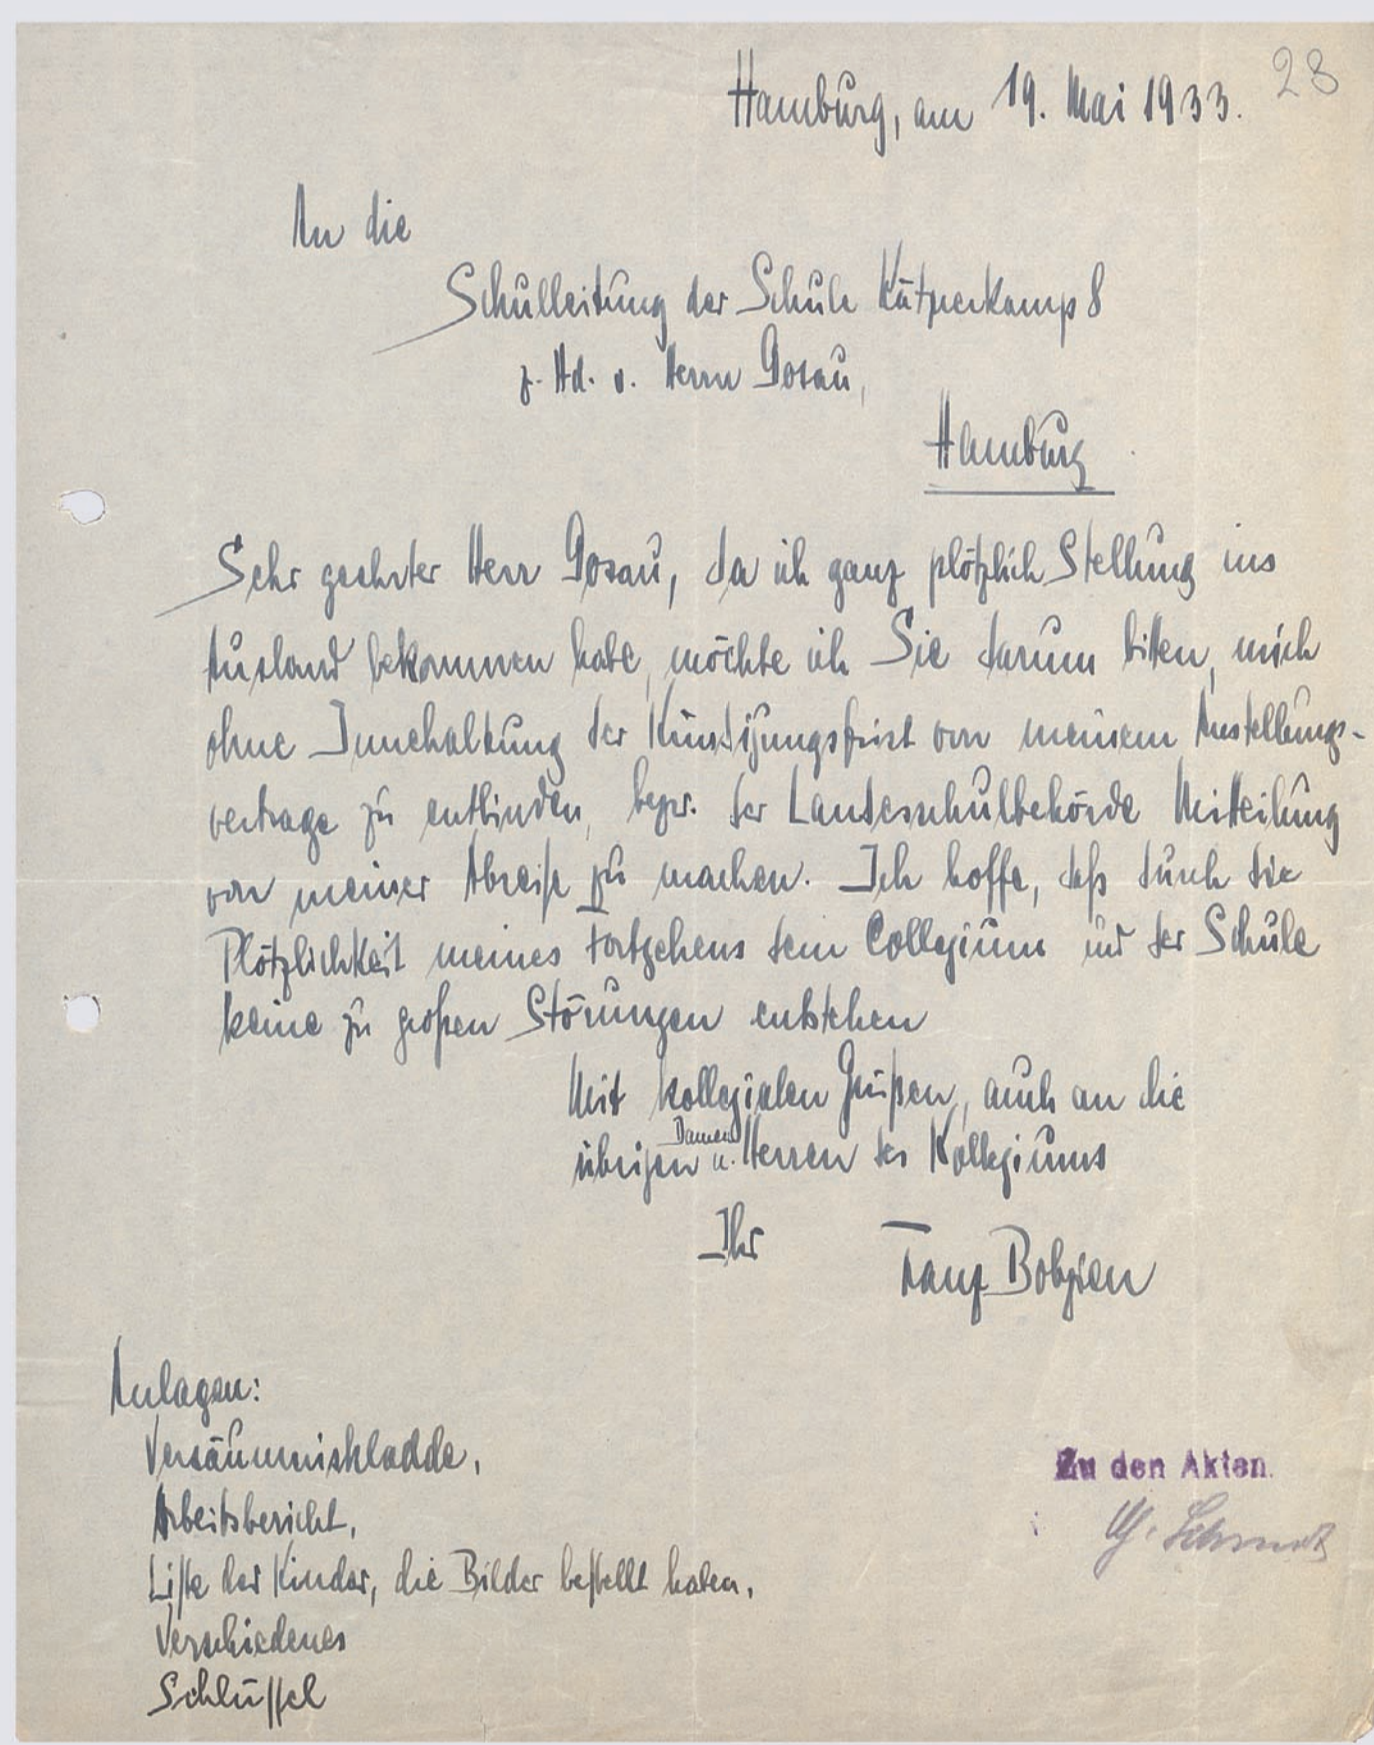 28
Hamburg, am 19. Mai 1933.
An die
Schulleitung der Schule Kätnerkamp 8
z. Hd. v. Herrn Gosau,
Hamburg
Sehr geehrter Herr Gosau, da ich ganz plötzlich Stellung ins
Ausland bekommen habe, möchte ich Sie darum bitten, mich
ohne Innehaltung der Kündigungsfrist von meinem Anstellungs-
vertrage zu entbinden, bezw. der Landesschulbehörde Mitteilung
von meiner Abreise zu machen. Ich hoffe, daß durch die
Plötzlichkeit meines Fortgehens dem Collegium und der Schule
keine zu großen Störungen entstehen
Mit kollegialen Grüßen, auch an die
übrigen Damen u. Herren des Kollegiums
Ihr Franz Bobzien
Anlagen:
Versäumniskladde,
Arbeitsbericht,
Liste der Kinder, die Bilder bestellt haben,
Verschiedenes
Schlüssel
Zu den Akten.